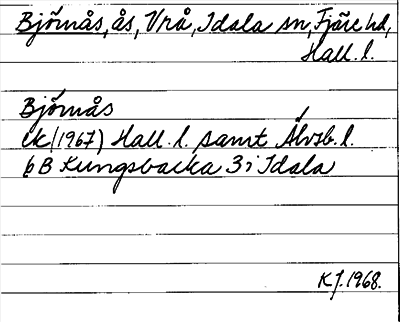 Björnås, ås, Vrå, Idala sn, Fjäre hd,
Hall. l.
Björnås
ek (1967) Hall. l. samt Älvsb. l.
6 B Kungsbacka 3 i Idala
K J. 1968.